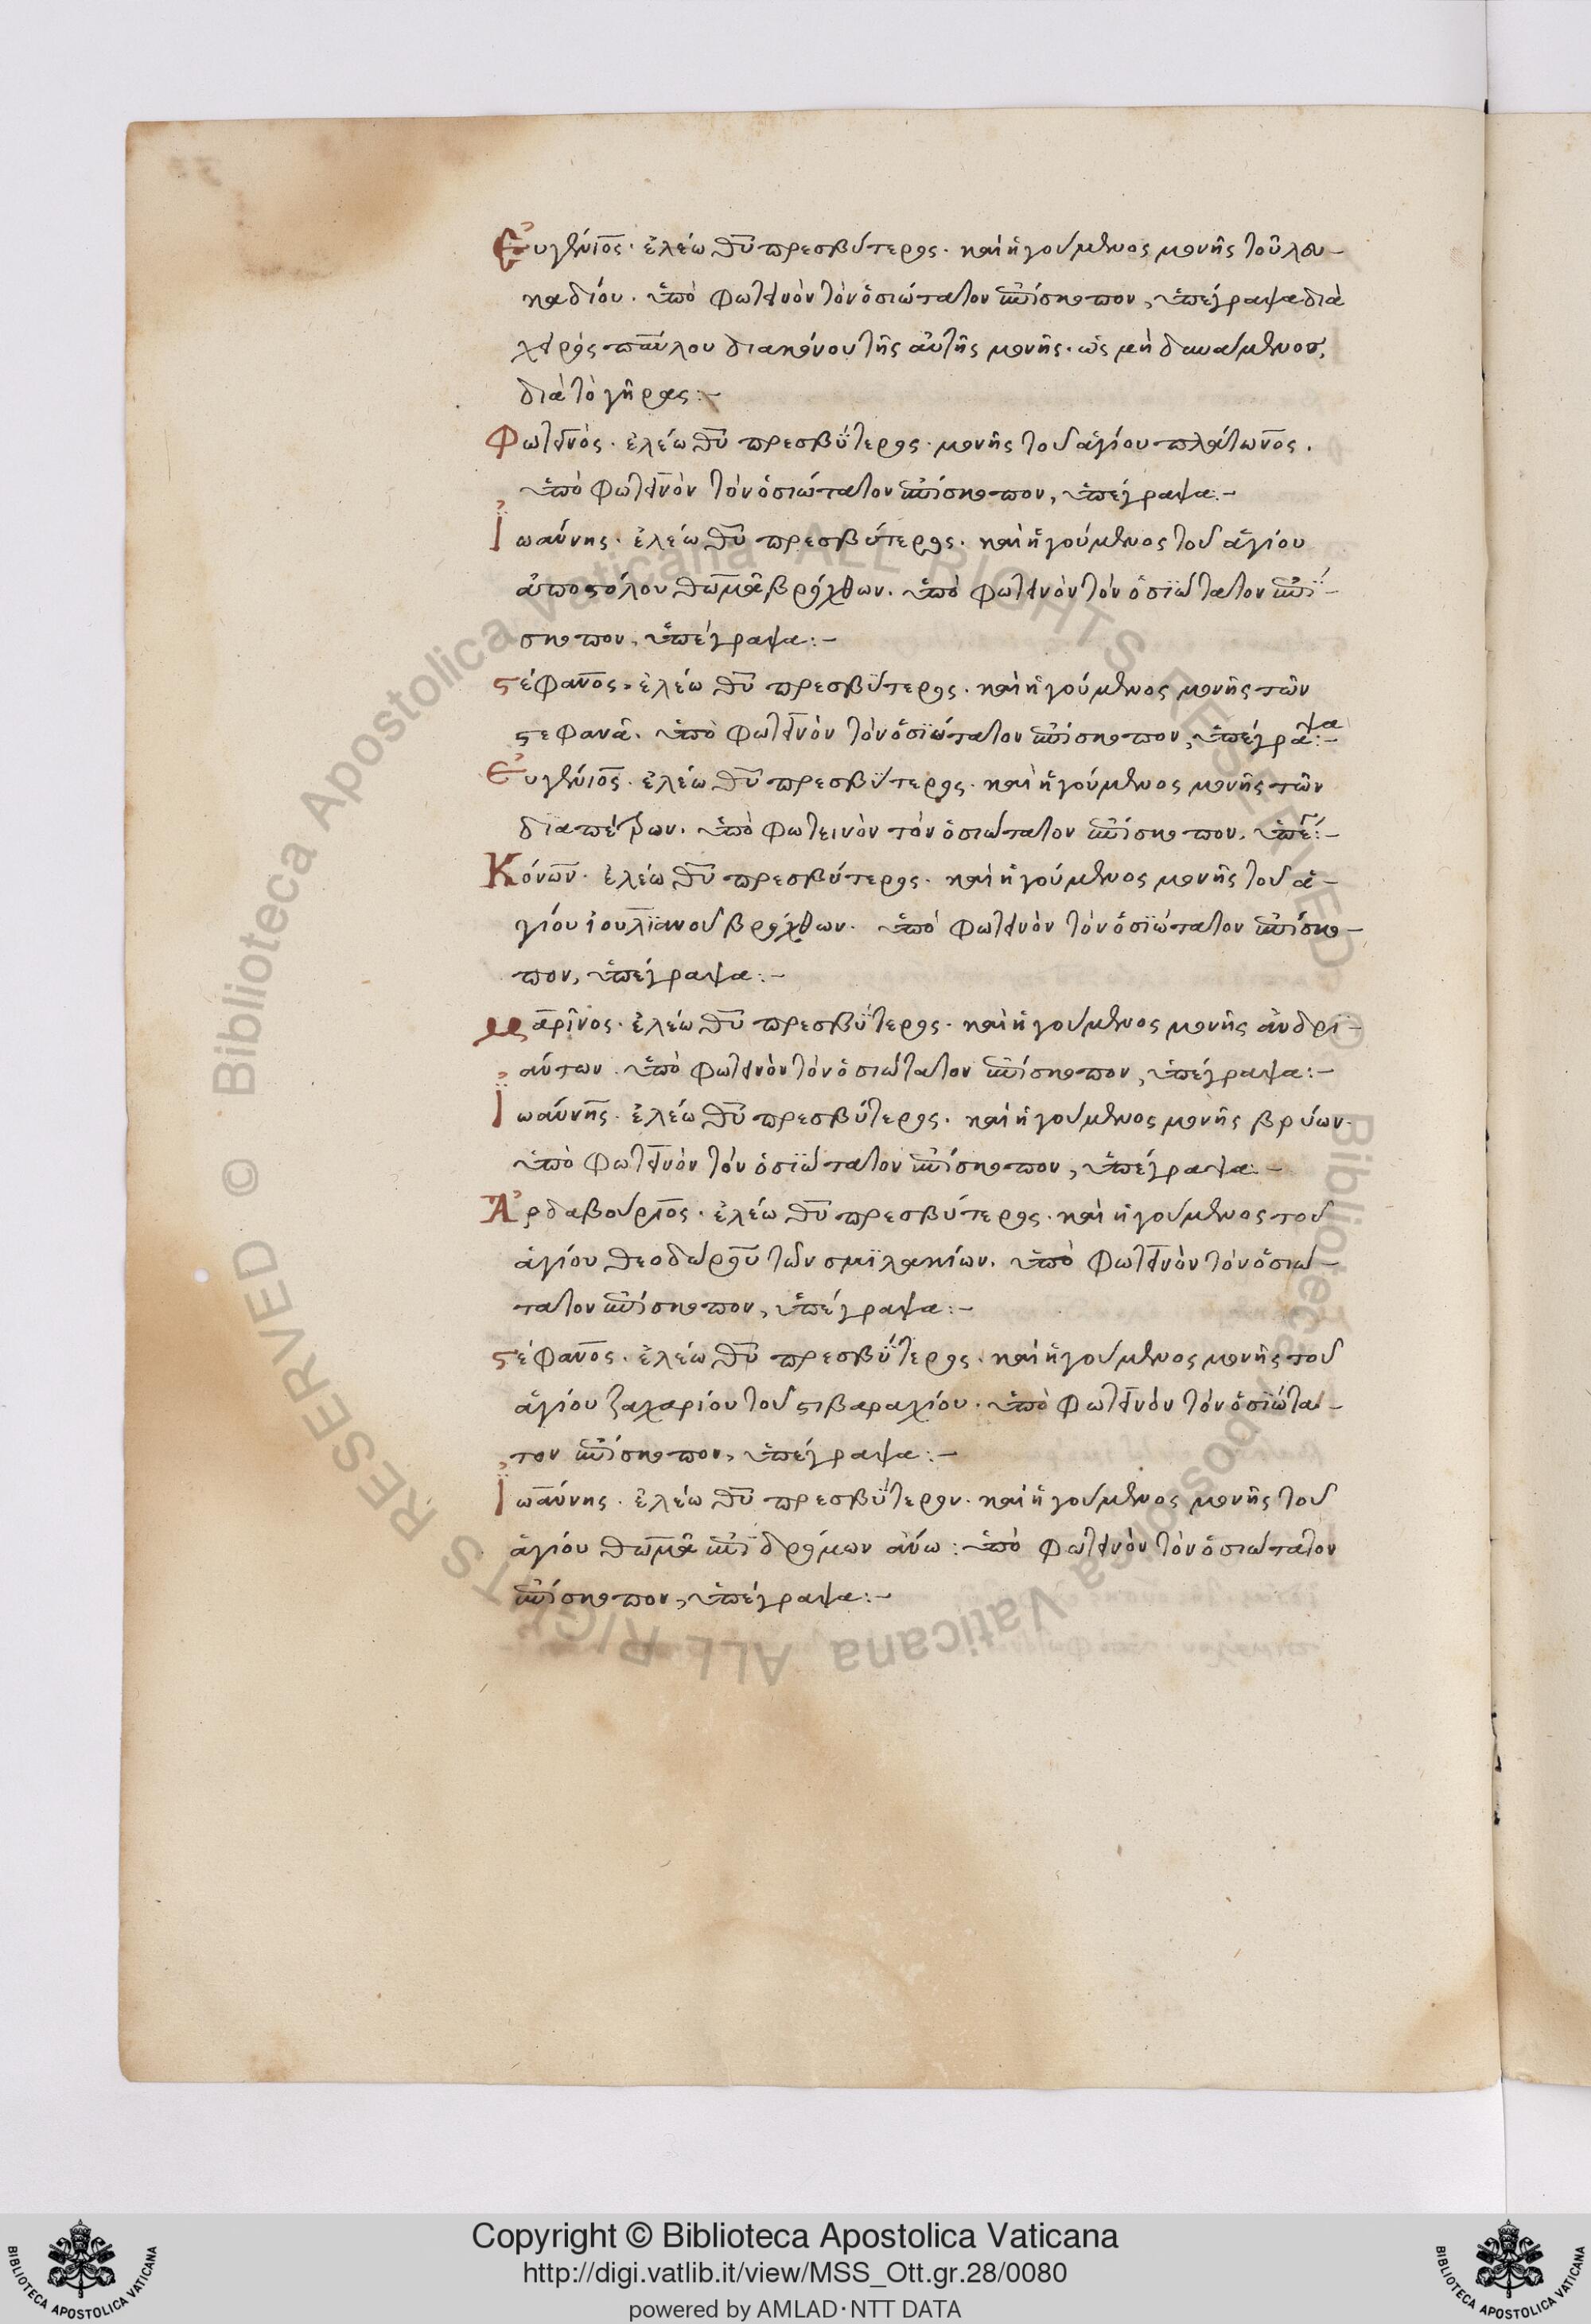 Εὐγένιος· ἐλέω θῦ πρεσβύτερος· καὶ ἡγούμενος μονῆς τοῦ λου-
καδίου. ὑπὸ Φωτεινὸν τὸν ὁσιώτατον ἐπίσκοπον, ὑπέγραψα διὰ
χειρὸς παύλου διακόνου τῆς αὐτῆς μονῆς. ὡς μὴ δυνάμενος,
διὰ τὸ γῆρας:-
Φωτεινός· ἐλέω θῦ πρεσβύτερος· μονῆς τοῦ ἁγίου πλάτωνος.
ὑπὸ Φωτεινὸν τὸν ὁσιώτατον ἐπίσκοπον, ὑπέγραψα:-
Ἰωάννης· ἐλέω θῦ πρεσβύτερος· καὶ ἡγούμενος τοῦ ἁγίου
ἀποστόλου θωμᾶ βρόχθων. ὑπὸ Φωτεινὸν τὸν ὁσιώτατον ἐπί-
σκοπον, ὑπέγραψα:-
Στέφανος· ἐλέω θῦ πρεσβύτερος· καὶ ἡγούμενος μονῆς τῶν
στεφανᾶ. ὑπὸ Φωτεινὸν τὸν ὁσιώτατον ἐπίσκοπον, ὑπέγραψα:-
Εὐγένιος· ἐλέω θῦ πρεσβύτερος· καὶ ἡγούμενος μονῆς τῶν
διαπέρων. ὑπὸ Φωτεινὸν τὸν ὁσιώτατον ἐπίσκοπον. ὑπέ:-
Κόνων· ἐλέω θῦ πρεσβύτερος· καὶ ἡγούμενος μονῆς τοῦ ἁ-
γίου ἰουλϊανοῦ βρόχθων. ὑπὸ Φωτεινὸν τὸν ὁσιώτατον ἐπίσκο-
πον, ὑπέγραψα:-
Μαρῖνος· ἐλέω θῦ πρεσβύτερος· καὶ ἡγούμενος μονῆς ἀνδρι-
άντων. ὑπὸ Φωτεινὸν τὸν ὁσιώτατον ἐπίσκοπον, ὑπέγραψα:-
Ἰωάννης· ἐλέω θῦ πρεσβύτερος· καὶ ἡγούμενος μονῆς βρύων.
ὑπὸ Φωτεινὸν τὸν ὁσιώτατον ἐπίσκοπον, ὑπέγραψα:-
Ἀρδαβούριος· ἐλέω θῦ πρεσβύτερος· καὶ ἡγούμενος τοῦ
ἁγίου θεοδώρου τῶν σμϊλακίων. ὑπὸ Φωτεινὸν τὸν ὁσιώ-
τατον ἐπίσκοπον, ὑπέγραψα:-
Στέφανος· ἐλέω θῦ πρεσβύτερος· καὶ ἡγούμενος μονῆς τοῦ
ἁγίου ζαχαρίου τοῦ στιβαραχίου. ὑπὸ Φωτεινὸν τὸν ὁσιώτα-
τον ἐπίσκοπον, ὑπέγραψα:-
Ἰωάννης· ἐλέω θῦ πρεσβύτερον· καὶ ἡγούμενος μονῆς τοῦ
ἁγίου θωμᾶ ἐπὶ δρόμων ἄνω: ὑπὸ Φωτεινὸν τὸν ὁσιώτατον
ἐπίσκοπον, ὑπέγραψα:-
© Biblioteca Apostolica Vaticana ALL RIGHTS RESERVED
© Biblioteca Apostolica Vaticana ALL RIGHTS RESERVED
Copyright © Biblioteca Apostolica Vaticana
http://digi.vatlib.it/view/MSS_Ott.gr.28/0080
powered by AMLAD·NTT DATA
BIBLIOTECA APOSTOLICA VATICANA
BIBLIOTECA APOSTOLICA VATICANA